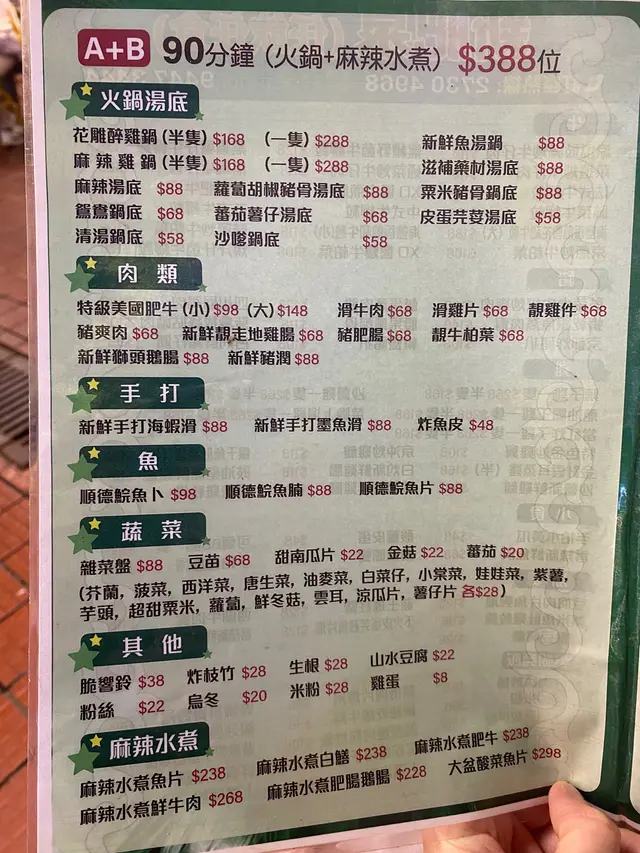 A+B 90分鐘（火鍋+麻辣水煮）$388位
火鍋湯底
花雕醉雞鍋（半隻）$168 （一隻）$288 新鮮魚湯鍋 $88
麻辣雞鍋（半隻）$168 （一隻）$288 滋補藥材湯底 $88
麻辣湯底 $88 蘿蔔胡椒豬骨湯底 $88 粟米豬骨鍋底 $88
鴛鴦鍋底 $68 蕃茄薯仔湯底 $68 皮蛋芫荽湯底 $58
清湯鍋底 $58 沙嗲鍋底 $58
肉類
特級美國肥牛（小）$98（大）$148 滑牛肉 $68 滑雞片 $68 靚雞件 $68
豬爽肉 $68 新鮮靚走地雞腸 $68 豬肥腸 $68 靚牛柏葉 $68
新鮮獅頭鵝腸 $88 新鮮豬潤 $88
手打
新鮮手打海蝦滑 $88 新鮮手打墨魚滑 $88 炸魚皮 $48
魚
順德鯇魚卜 $98 順德鯇魚腩 $88 順德鯇魚片 $88
蔬菜
雜菜盤 $88 豆苗 $68 甜南瓜片 $22 金菇 $22 蕃茄 $20
（芥蘭，菠菜，西洋菜，唐生菜，油麥菜，白菜仔，小棠菜，娃娃菜，紫薯，
芋頭，超甜粟米，蘿蔔，鮮冬菇，雲耳，涼瓜片，薯仔片 各$28）
其他
脆響鈴 $38 炸枝竹 $28 生根 $28 山水豆腐 $22
粉絲 $22 烏冬 $20 米粉 $28 雞蛋 $8
麻辣水煮
麻辣水煮魚片 $238 麻辣水煮白鱔 $238 麻辣水煮肥牛 $238
麻辣水煮鮮牛肉 $268 麻辣水煮肥腸鵝腸 $228 大盆酸菜魚片 $298